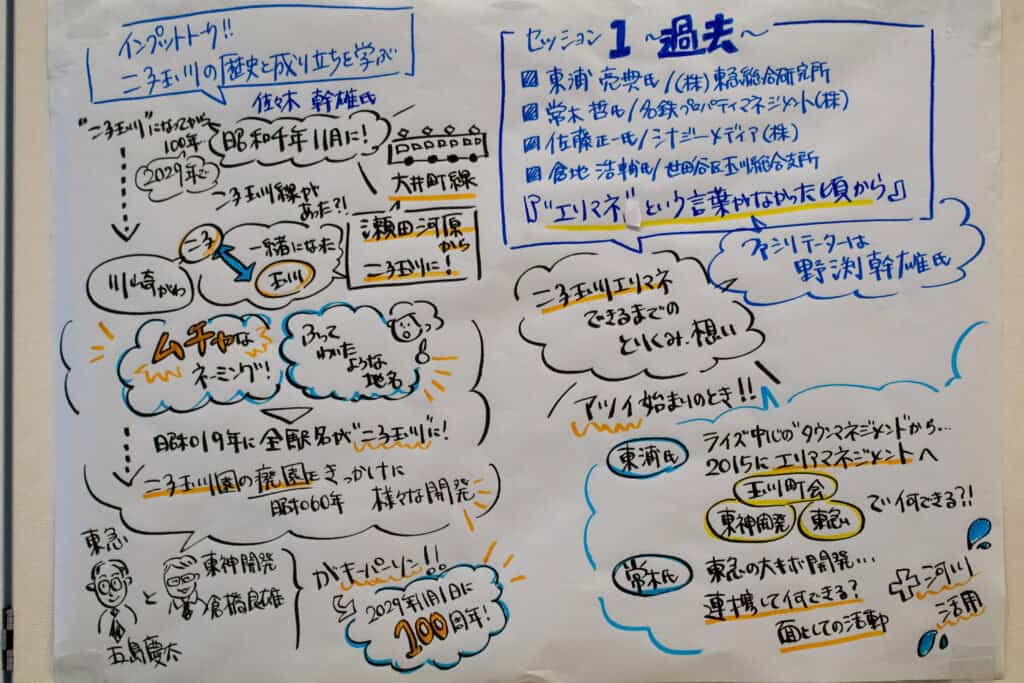 インプットトーク!!
二子玉川の歴史と成り立ちを学ぶ
佐々木 幹雄氏
"二子玉川"になってから
100年
2029年で
昭和4年11月に!
大井町線
二子玉川線が
あった?!
瀬田河原
から
二子玉川に!
二子
一緒になれた
玉川
川崎がわ
ムチャな
ネーミング!
ふって
わいた
ような
地名
昭和19年に全駅名が"二子玉川"に!
二子玉川園の廃園をきっかけに
昭和60年 様々な開発
東急
五島慶太
と
東神開発
倉橋良雄
がキーパーソン!!
2029年11月1日に
100周年!
セッション1 〜過去〜
東浦 亮典氏/(株)東急総合研究所
常木 哲氏/名鉄プロパティマネジメント(株)
佐藤正一氏/シナジーメディア(株)
倉地 浩輔氏/世田谷区玉川総合支所
『"エリマネ"という言葉がなかった頃から』
ファシリテーターは
野渕幹雄氏
二子玉川エリマネ
できるまでの
とりくみ、想い
アツイ始まりのとき!!
東浦氏
ライズ中心のタウンマネジメントから…
2015にエリアマネジメントへ
玉川町会
東神開発
東急
で何できる?!
常木氏
東急の大キボ開発…
連携して何できる?
面としての活動
河川
活用